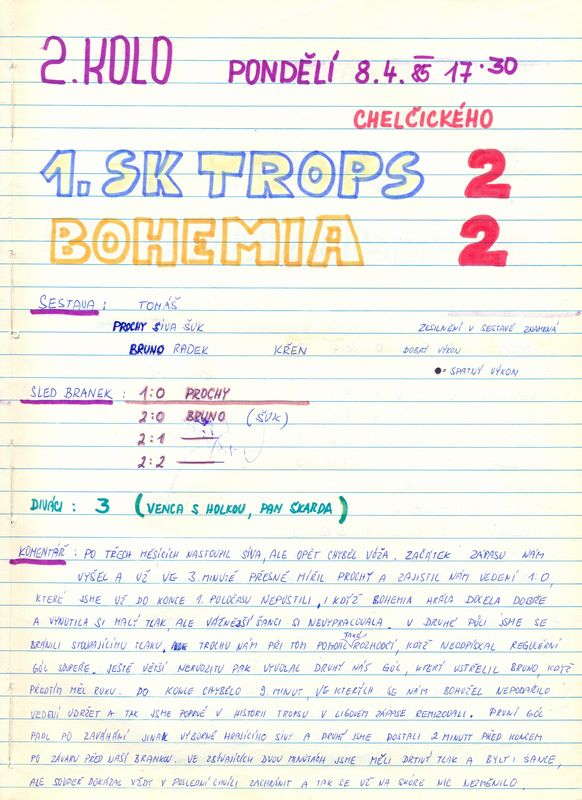 2. KOLO PONDĚLÍ 8.4. 85 17·30
CHELČICKÉHO
1. SK TROPS 2
BOHEMIA 2
SESTAVA : TOMÁŠ
PROCHY SÍVA ŠUK ZESILNĚNÍ V SESTAVĚ ZNAMENÁ
BRUNO RADEK KŘEN DOBRÝ VÝKON
● = ŠPATNÝ VÝKON
SLED BRANEK : 1:0 PROCHY
2:0 BRUNO (ŠUK)
2:1 ——
2:2 ——
DIVÁCI : 3 (VENCA S HOLKOU, PAN ŠKARDA)
KOMENTÁŘ : PO TŘECH MĚSÍCÍCH NASTOUPIL SÍVA, ALE OPĚT CHYBĚL VÓŽA. ZAČÁTEK ZÁPASU NÁM
VYŠEL A UŽ VE 3. MINUTĚ PŘESNĚ MÍŘIL PROCHY A ZAJISTIL NÁM VEDENÍ 1:0,
KTERÉ JSME UŽ DO KONCE 1. POLOČASU NEPUSTILI, I KDYŽ BOHEMIA HRÁLA DOCELA DOBŘE
A VYNUTILA SI MALÝ TLAK ALE VÁŽNĚJŠÍ ŠANCI SI NEVYPRACOVALA. V DRUHÉ PŮLI JSME SE
BRÁNILI STOUPAJÍCÍMU TLAKU, TROCHU NÁM PŘI TOM POMOHL TAKÉ ROZHODČÍ, KDYŽ NEODPÍSKAL REGULÉRNÍ
GÓL SOUPEŘE. JEŠTĚ VĚTŠÍ NERVOZITU PAK VYVOLAL DRUHÝ NÁŠ GÓL, KTERÝ VSTŘELIL BRUNO, KDYŽ
PŘEDTÍM MĚL RUKU. DO KONCE CHYBĚLO 9 MINUT, VE KTERÝCH SE NÁM BOHUŽEL NEPODAŘILO
VEDENÍ UDRŽET A TAK JSME POPRVÉ V HISTORII TROPSU V LIGOVÉM ZÁPASE REMIZOVALI. PRVNÍ GÓL
PADL PO ZAVÁHÁNÍ JINAK VÝBORNĚ HRAJÍCÍHO SÍVY A DRUHÝ JSME DOSTALI 2 MINUTY PŘED KONCEM
PO ZÁVARU PŘED NAŠÍ BRANKOU. VE ZBÝVAJÍCÍCH DVOU MINUTÁCH JSME MĚLI DRTIVÝ TLAK A BYLY I ŠANCE,
ALE SOUPEŘ DOKÁZAL VŽDY V POSLEDNÍ CHVÍLI ZACHRÁNIT A TAK SE UŽ NA SKÓRE NIC NEZMĚNILO.